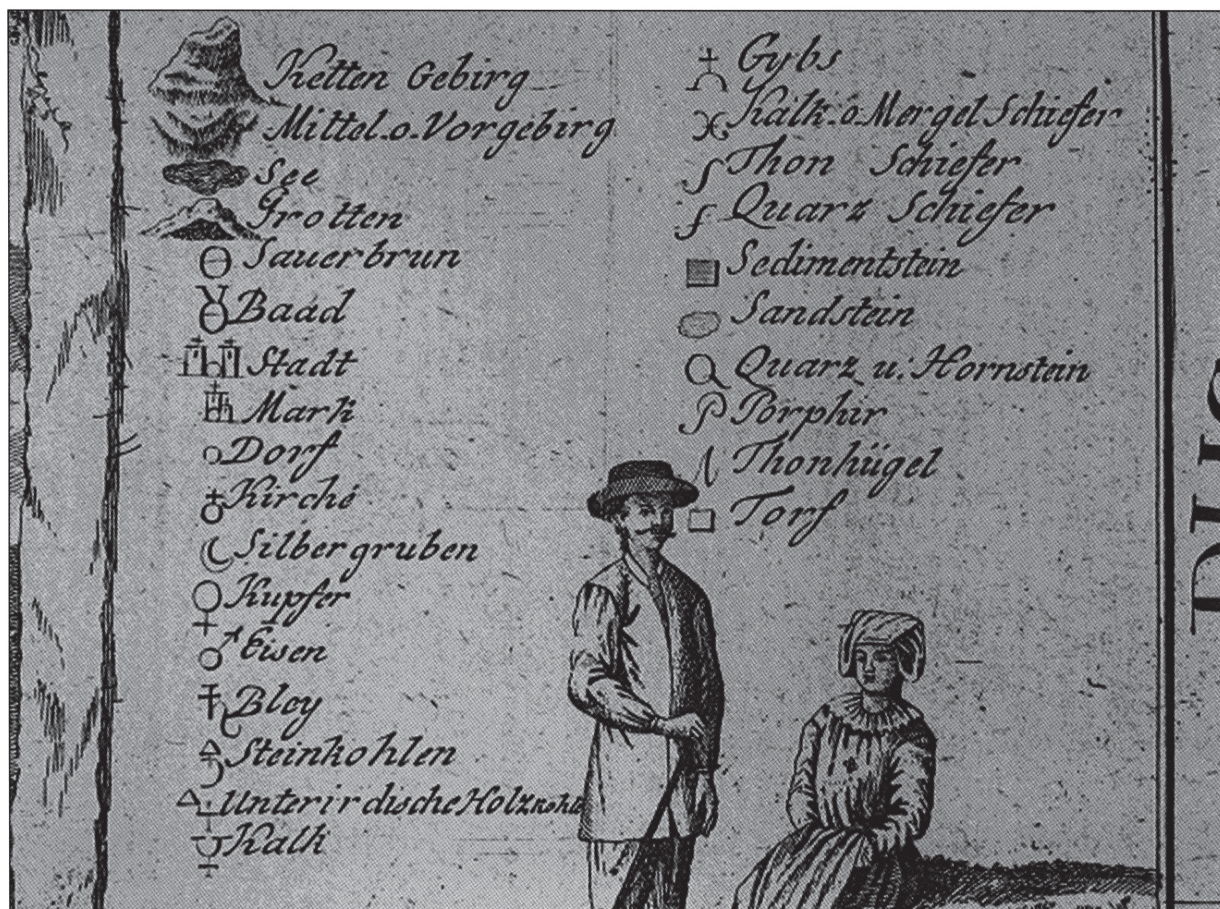 Ketten Gebirg
Mittel.o.Vorgebirg
See
Grotten
Sauerbrun
Baad
Stadt
Mark
Dorf
Kirche
Silbergruben
Kupfer
Eisen
Bley
Steinkohlen
Unterirdische Holzkohl
Kalk
Gybs
Kalk.o.Mergel Schiefer
Thon Schiefer
Quarz Schiefer
Sedimentstein
Sandstein
Quarz u. Hornstein
Porphir
Thonhügel
Torf